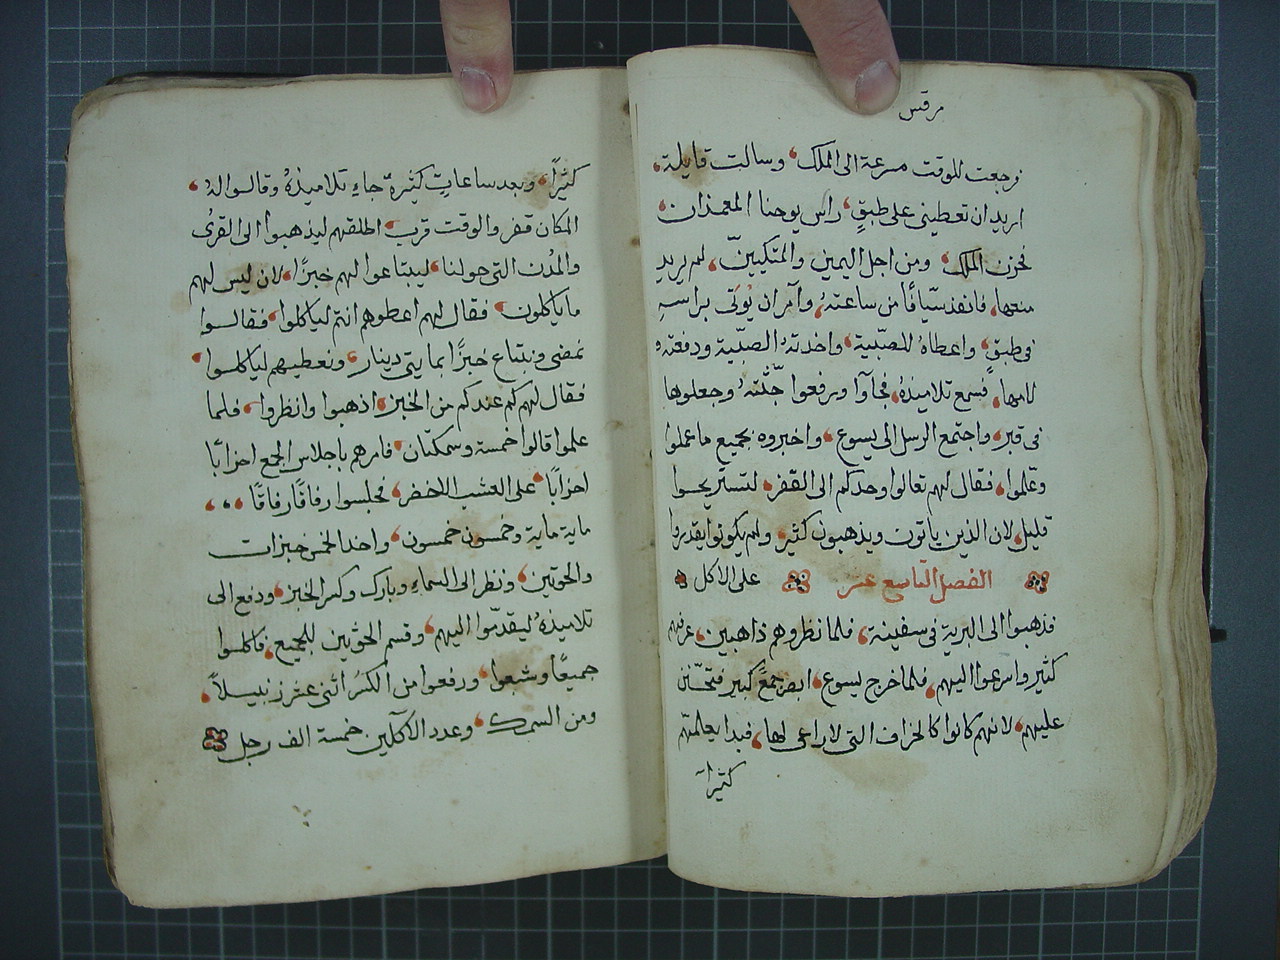 مرقس
فرجعت للوقت مسرعة الى الملك، وسالت قايلة،
اريد ان تعطيني على طبقٍ، راس يوحنا المعمدان،
فحزن الملك، ومن اجل اليمين والمتكيين، لم يريد
منعها، فانفد سيّافًا من ساعته، وآمر ان يُوتى براسهِ
في طبقٍ، واعطاهُ للصبّية، واخدتهُ الصبّية ودفعته
لامها، فسمع تلاميذهُ، فجاوا ورفعوا جثّتهُ وجعلوها
في قبر، واجتمع الرسل الى يسوع، واخبروه بجميع ما عملوا
وعلموا، فقال لهم تعالوا وحدكم الى القفر، لتستريحوا
قليل، لان الذين ياتون ويذهبون كثير، ولم يكونوا يقدروا
على الاكل
الفصل التاسع عشر
فذهبوا الى البرية في سفينة، فلما نظروهم ذاهبين، عرفهم
كثير واسرعوا اليهم، فلما خرج يسوع، ابصر جمعً كبير فتحنّن
عليهم، لانهم كانوا كالخراف التي لا راعى لها، فبدا يعلمهم
كثيرًا
كثيرًا، وبعد ساعاتٍ كثيرة جاءِ تلاميذهُ وقالوا لهُ،
المكان قفر والوقت قرب، اطلقهم ليذهبوا الى القرى
والمُدن التي حولنا، ليبتاعوا لهم خبزًا، لان ليس لهم
ما ياكلون، فقال لهم اعطوهم انتم لياكلوا، فقالوا
نمضى ونبتاع خبزًا بمايتي دينار، ونعطيهم لياكلوا،
فقال لهم كم عندكم من الخبز، اذهبوا وانظروا، فلما
علموا قالوا خمسة وسمكتان، فامرهم باجلاس الجمع احزابًا
احزابًا، على العشب الاخضر، فجلسوا رفاقًا رفاقًا،،،
ماية ماية وخمسون خمسون، واخد الخمس خبزات
والحوتين، ونظر الى السماءِ وبارك وكسر الخبز، ودفع الى
تلاميذهُ ليقدّموا اليهم، وقسم الحوتين للجميع، فاكلوا
جميعًا وشبعوا، ورفعوا من الكسرُ اثني عشر زنبيلاً،
ومن السمك، وعدد الآكلين خمسة الف رجل